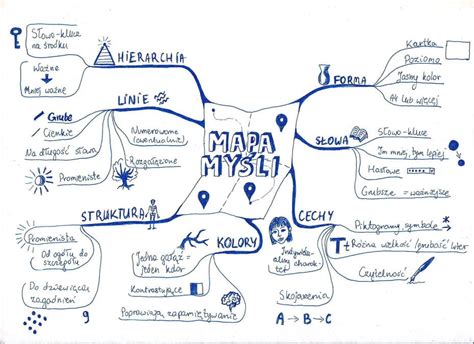 MAPA
MYŚLI
HIERARCHIA
Słowo-klucz
na środku
Ważne
Mniej ważne
LINIE
Grube
Cienkie
Na długość słowa
Promieniste
Numerowane
(ewentualnie)
Rozgałęzione
STRUKTURA
Promienista
Od ogółu do
szczegółu
Do dziewięciu
zagadnień
9
KOLORY
Jedna gałąź =
jeden kolor
Kontrastujące
Poprawiają zapamiętywanie
FORMA
Kartka
Poziomo
Jasny kolor
A4 lub więcej
SŁOWA
Słowo-klucz
Im mniej, tym lepiej
Hasłowe
Grubsze = ważniejsze
CECHY
Indywidu-
alny charak-
ter
Piktogramy, symbole
T
Różna wielkość/grubość liter
Czytelność
Skojarzenia
A → B → C